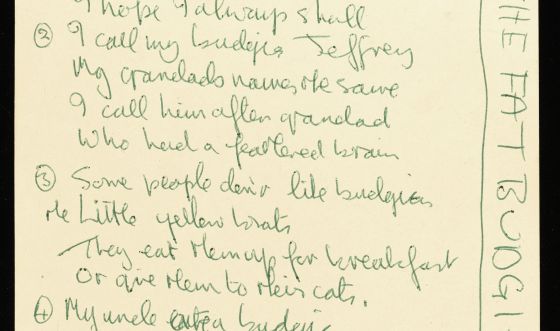 I hope I always shall
② I call my budgie Jeffrey
My grandads names the same
I call him after grandad
Who had a feathered brain
③ Some people don't like budgies
the Little yellow brats
They eat them up for breakfast
Or give them to their cats.
④ My uncle eat a budgie
THE FAT BUDGI